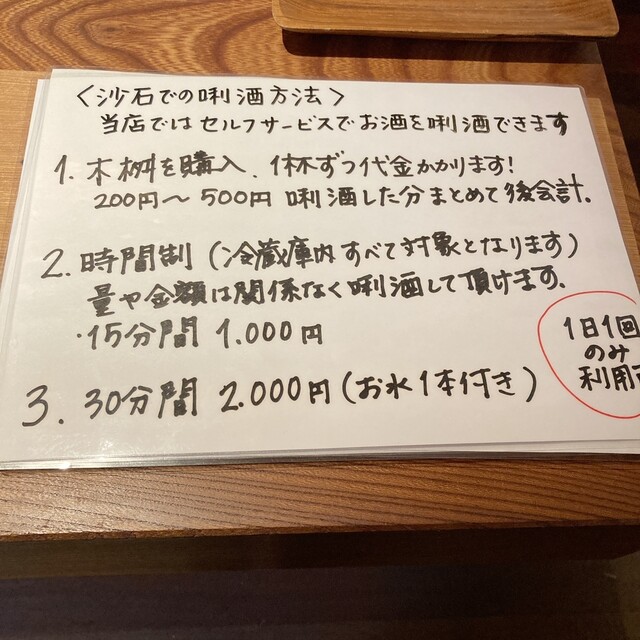 〈沙石での唎酒方法〉
当店ではセルフサービスでお酒を唎酒できます
1. 木桝を購入、1杯ずつ代金かかります!
200円〜500円 唎酒した分まとめて後会計.
2. 時間制(冷蔵庫内すべて対象となります)
量や金額は関係なく唎酒して頂けます.
・15分間 1.000円
3. 30分間 2.000円(お水1本付き)
1日1回
のみ
利用可